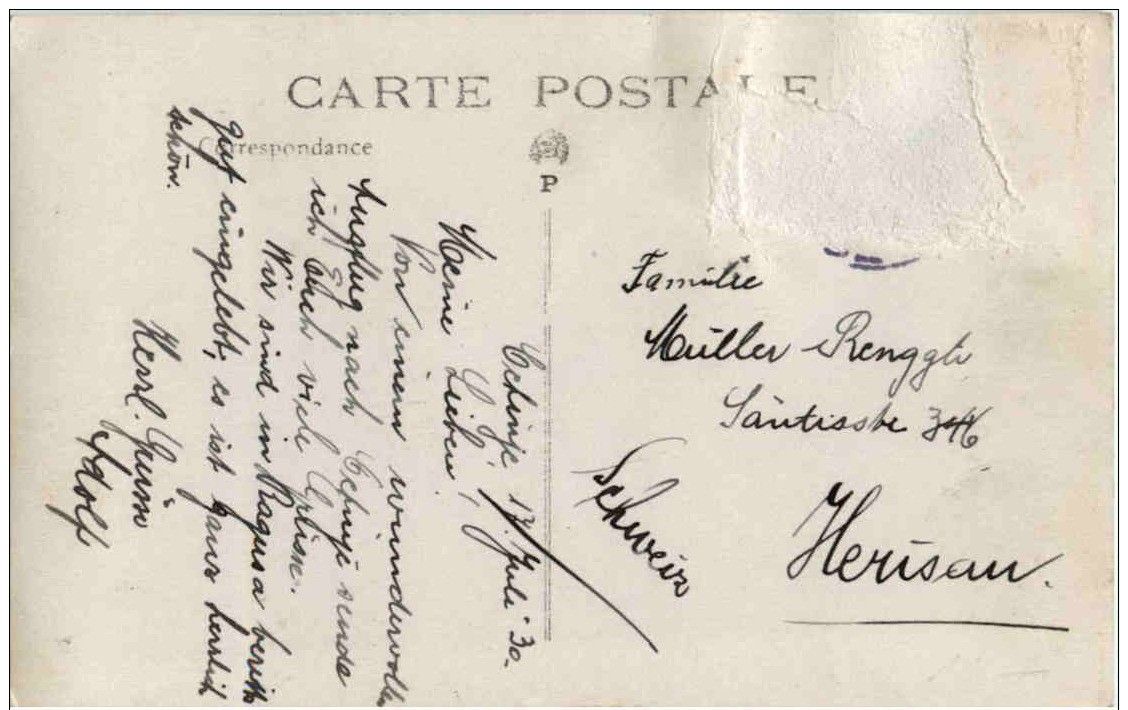 CARTE POSTALE
Correspondance
P
Cetinje, 17. Juli 30.
Meine Lieben!
Von einem wundervollen
Ausflug nach Cetinje sende
ich Euch viele Grüsse.
Wir sind in Ragusa bereits
gut eingelebt, es ist ganz herrlich
schön.
Herzl. Gruss
Adolf
Familie
Müller-Renggli
Säntisstr.
Herisau.
Schweiz